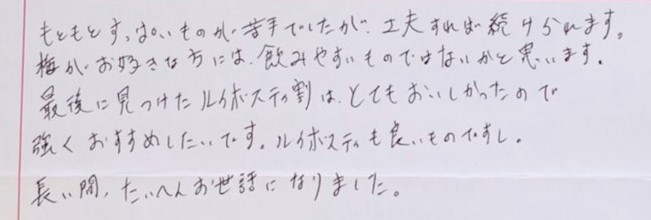 もともとすっぱいものが苦手でしたが、工夫すれば続けられます。
梅がお好きな方には、飲みやすいものではないかと思います。
最後に見つけたルイボスティ割は、とてもおいしかったので
強くおすすめしたいです。ルイボスティも良いものですし。
長い間、たいへんお世話になりました。